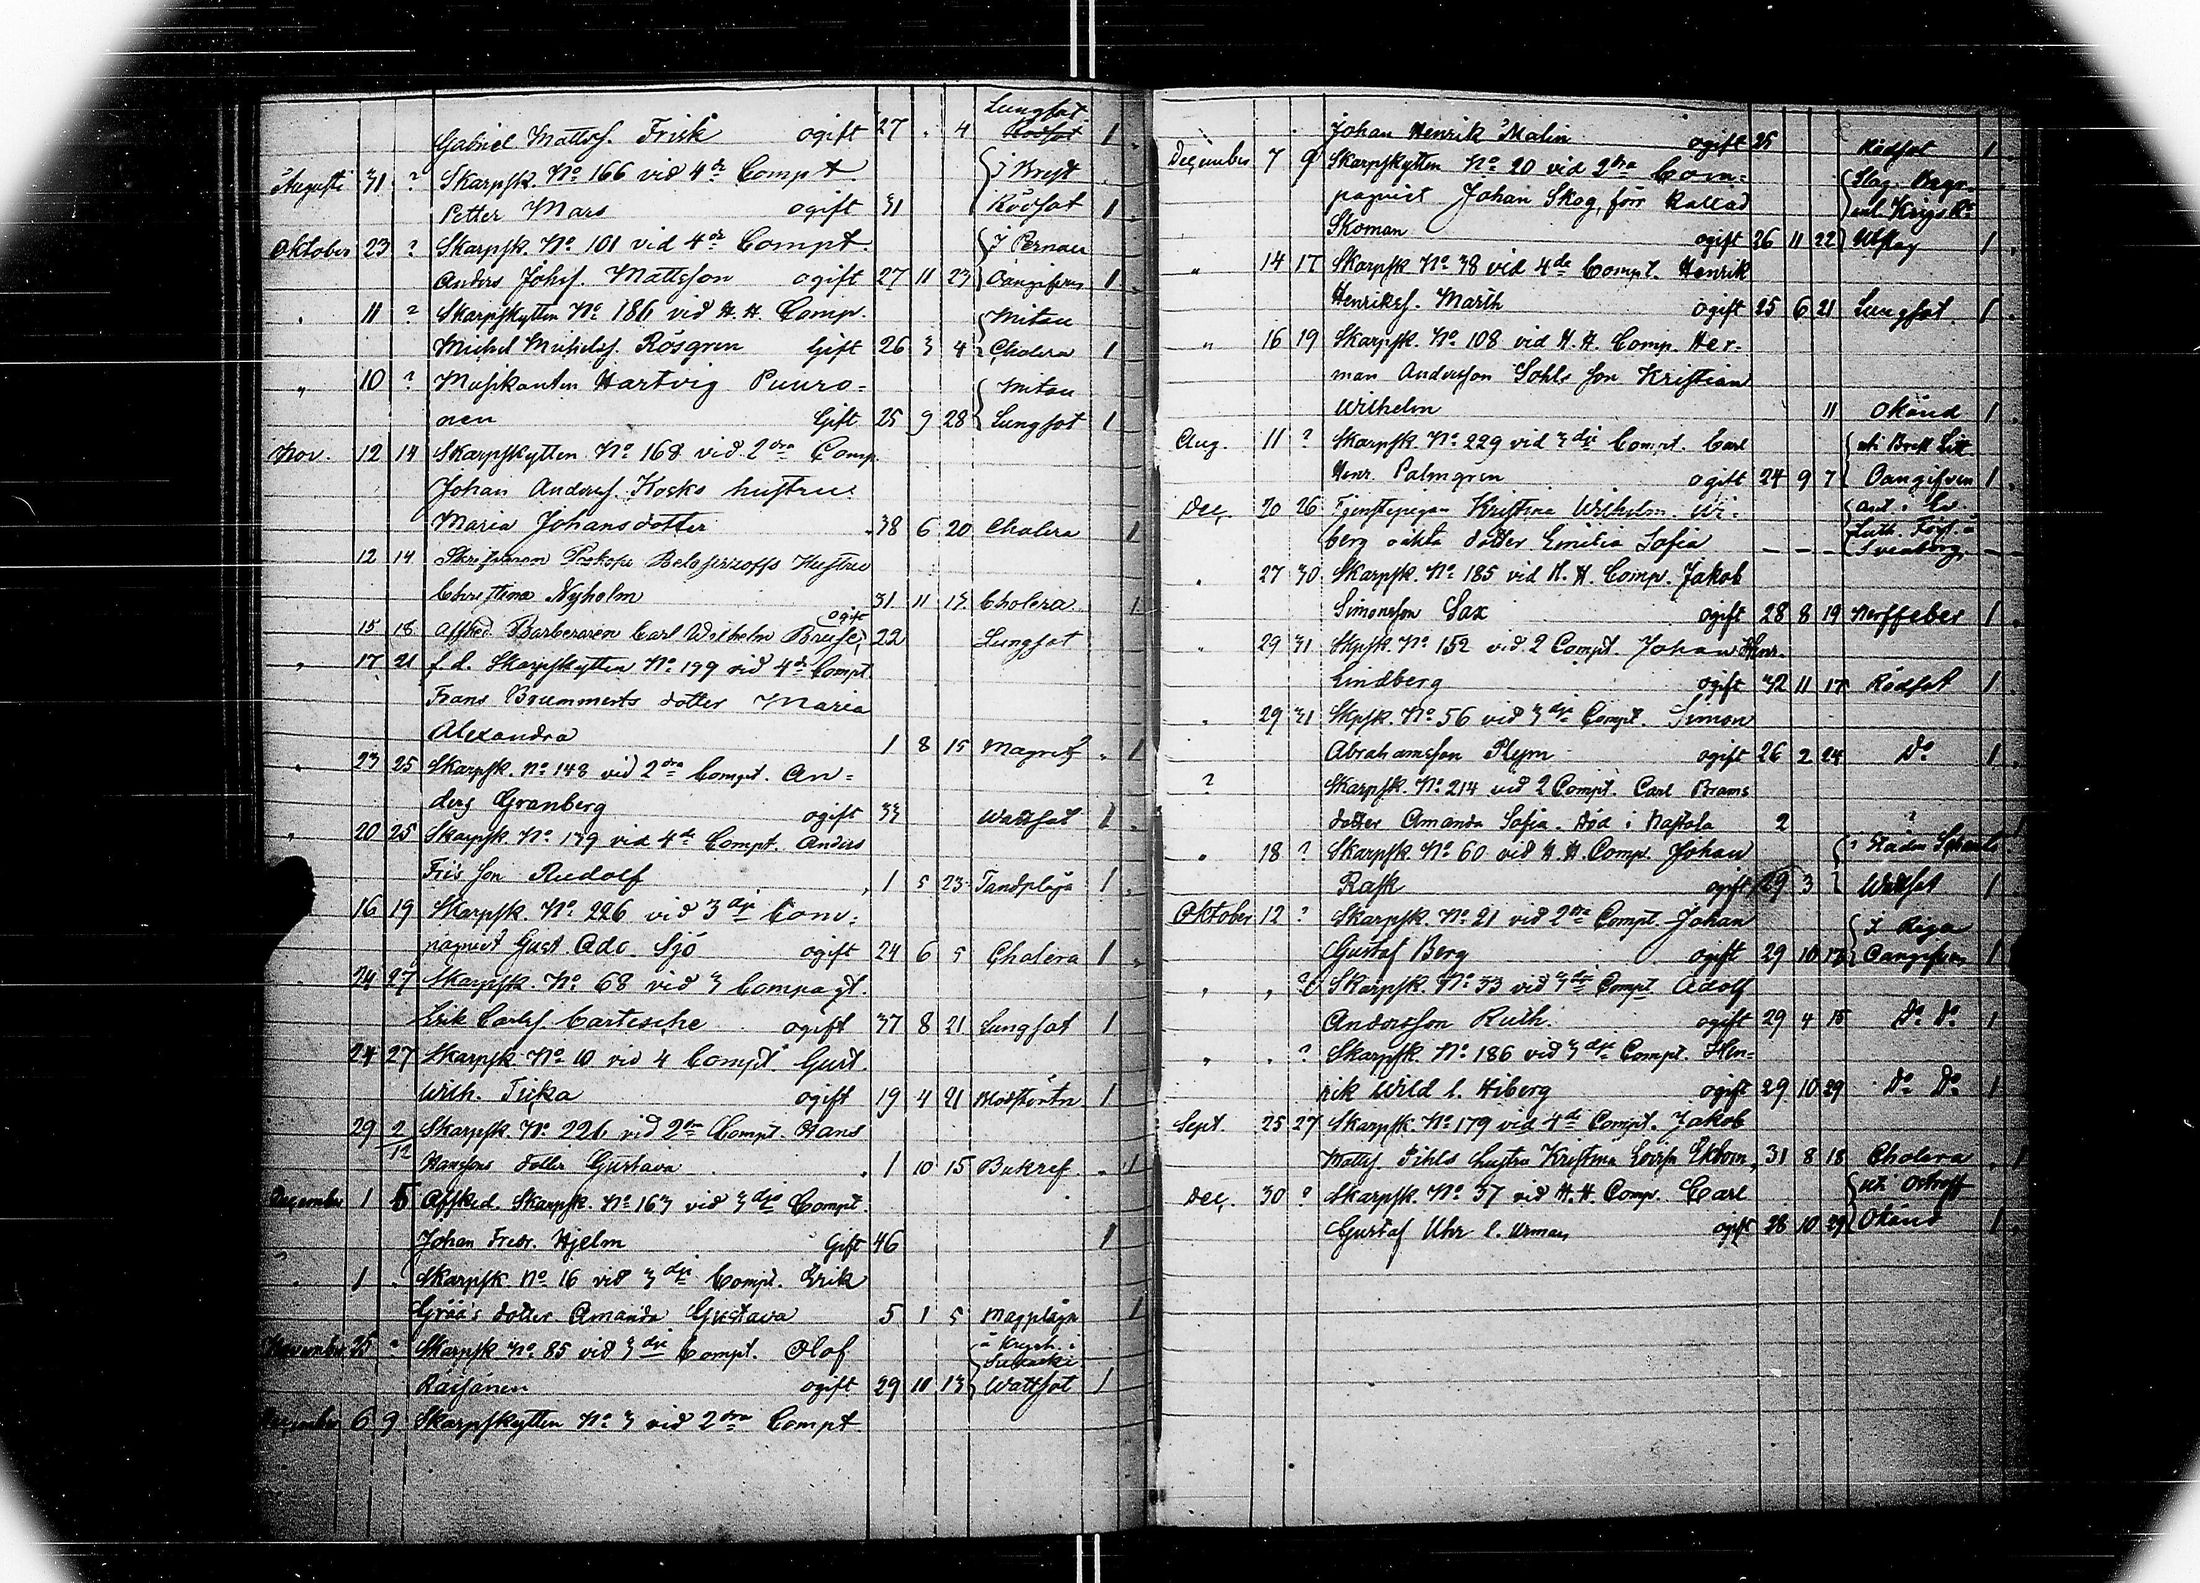 Gabriel Mattsf. Frisk ogift 27 . 4 Lungsot Rödsot 1
Augusti 31 ? Skarpsk. No 166 vid 4de Compt { i Brest
Petter Mars ogift 31 Rödsot 1
Oktober 23 ? Skarpsk. No 101 vid 4de Compt. { i Pernau
Anders Johsf. Mattsson ogift 27 11 23 Oangifven 1
" 11 ? Skarpskytten No 186 vid H. H. Comp. { Mitau
Michel Michelsf. Rosgren Gift 26 3 4 Cholera 1
" 10 ? Musikanten Hartvig Puuro= { Mitau
nen Gift 25 9 28 Lungsot 1
Nov. 12 14 Skarpskytten No 168 vid 2dra Comp
Johan Andersf. Kosks hustru
Maria Johansdotter 38 6 20 Cholera 1
12 14 Prokopi Hustru
Christina Nyholm 31 11 13 Cholera 1
15 18 Afsked. Barberaren Carl Wilhelm ogift 22 Lungsot
" 17 21 f.d. Skarpskytten No 199 vid 4de Compt.
Frans Brummerts dotter Maria
Alexandra 1 8 15 1
" 23 25 Skarpsk. No 148 vid 2dra Compt. An=
ders Granberg ogift 33 Wattsot 1
" 20 25 Skarpsk. No 139 vid 4de Compt. Anders
Fri's son Rudolf 1 5 23 Tandplåga 1
16 19 Skarpsk. No 226 vid 3dje Com=
pagniet Gust. Ado. Sjö ogift 24 6 5 Cholera 1
" 24 27 Skarpsk. No 68 vid 3 Compagt.
Erik Carlsf. Cartesche ogift 37 8 21 Lungsot 1
24 27 Skarpsk. No 10 vid 4 Compt. Gust.
Wilh. ogift 19 4 21 Blodstörtn. 1
29 2/12 Skarpsk. No 226 vid 2dra Compt. Hans
Hansons dotter Gustava 1 10 15 Bukref. 1
December 1 5 Afsked. Skarpsk. No 163 vid 3dje Compt.
Johan Fredr. Hjelm Gift 46 1
" 1 . Skarpsk No 16 vid 3dje Compt. Erik
Gröö's dotter Amanda Gustava 5 1 5 Magplåga 1
November 25 ? Skarpsk No 85 vid 3dje Compt. Olof
Räisänen ogift 29 11 13 { Wattsot 1
December 6 9 Skarpskytten No 3 vid 2dra Compt.
Johan Henrik Malin ogift 25 Rödsot 1
December 7 9 Skarpskytten No 20 vid 2dra Com=
pagniet Johan Skog, förr kallad
Skoman ogift 26 11 22 Utslag 1
" 14 17 Skarpsk No 38 vid 4de Compt. Henrik
Henriksf. Marth ogift 25 6 21 Lungsot 1
" 16 19 Skarpsk. No 108 vid H. H. Comp. Her=
man Andersson Sohls son Kristian
Wilhelm 11 Okänd 1
Aug. 11 ? Skarpsk. No 229 vid 3dje Compt. Carl { uti Brest Lit
Henr. Palmgren ogift 24 9 7 Oangifven 1
Dec. 20 26 Tjenstepigan Kristina Wilhelm. Wi=
berg oäkta dotter Emilia Sofia – – – Luth. Förs. å Sveaborg – –
" 27 30 Skarpsk. No 185 vid H. H. Comp. Jakob
Simonsson Sax ogift 28 8 19 Nerffeber 1
" 29 31 Skpsk. No 152 vid 2 Compt. Johan Henr.
Lindberg ogift 32 11 17 Rödsot 1
" 29 31 Skpsk. No 56 vid 3dje Compt. Simon
Abrahamsson Plym ogift 26 2 24 Do 1
? Skarpsk. No 214 vid 2 Compt. Carl Brams
dotter Amanda Sofia. död i Nastola 2 ? 1
" 18 ? Skarpsk. No 60 vid H. H. Comp. Johan
Rask ogift 29 3 Wattsot 1
Oktober 12 ? Skarpsk. No 21 vid 2dra Compt. Johan { I Riga
Gustaf Berg ogift 29 10 13 Oangifven 1
" " ? Skarpsk. No 33 vid 3dje Compt. Adolf
Andersson Ruth. ogift 29 4 15 Do Do 1
" . ? Skarpsk. No 186 vid 3dje Compt. Hen=
rik Wild l. Wiberg ogift 29 10 29 Do Do 1
Sept. 25 27 Skarpsk. No 179 vid 4de Compt. Jakob
Mattsf. hustru Kristina Lovisa Ekbom 31 8 18 Cholera 1
Dec. 30 ? Skarpsk. No 37 vid H. H. Comp. Carl
Gustaf Uhr l. Urman ogift 28 10 29 Okänd 1